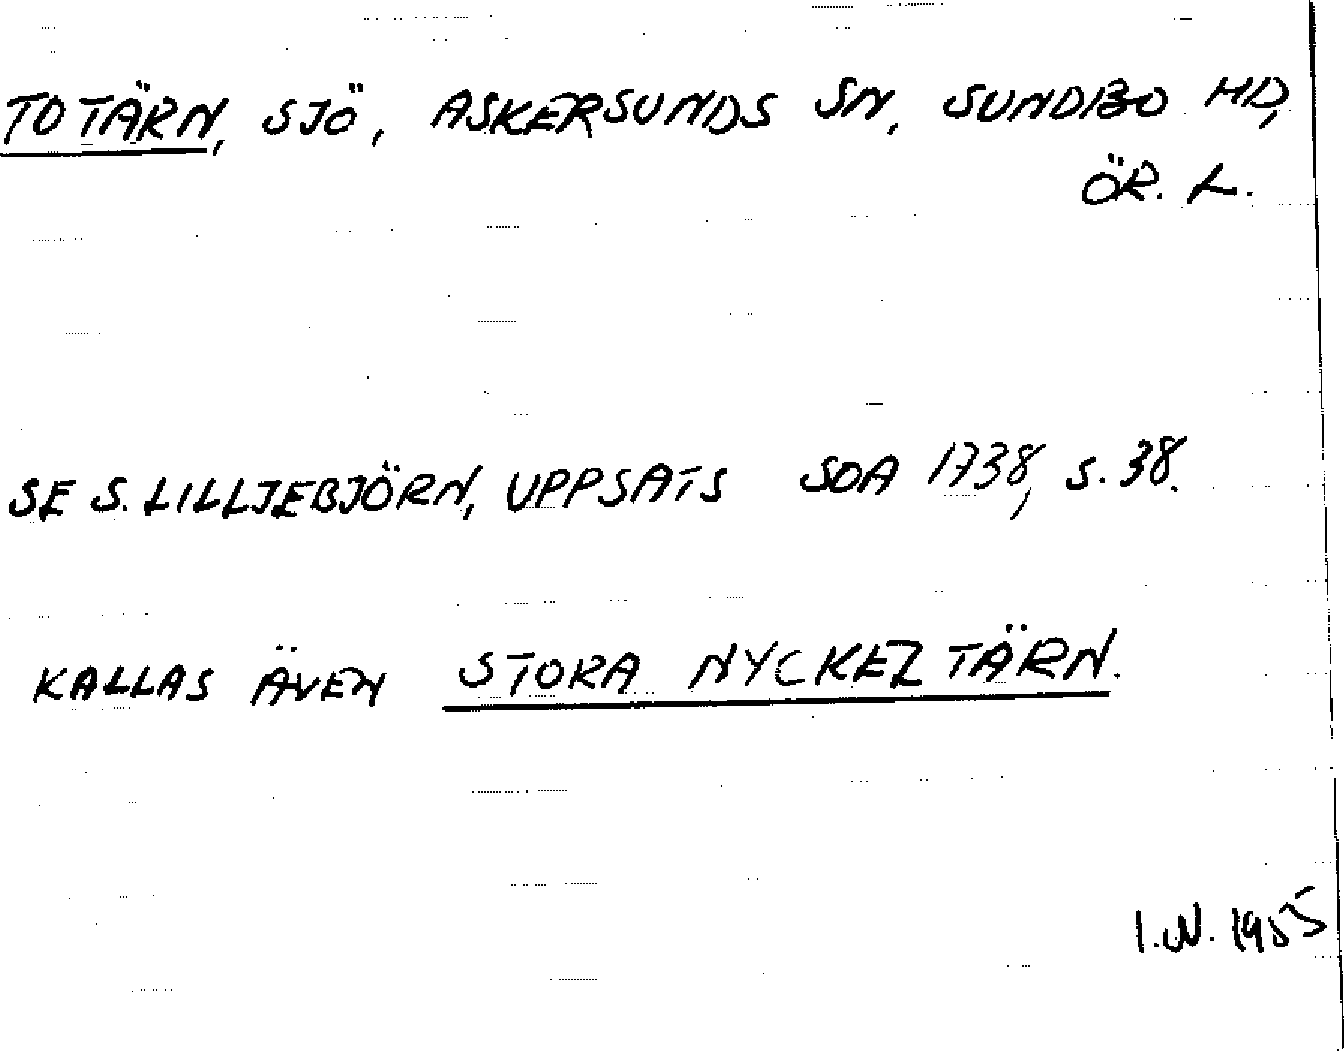 TOTÄRN, SJÖ, ASKERSUNDS SN, SUNDBO HD,
ÖR. L.
SE S. LILLJEBJÖRN, UPPSATS SOA 1738, S. 38.
KALLAS ÄVEN STORA NYCKELTÄRN.
I.W. 1955